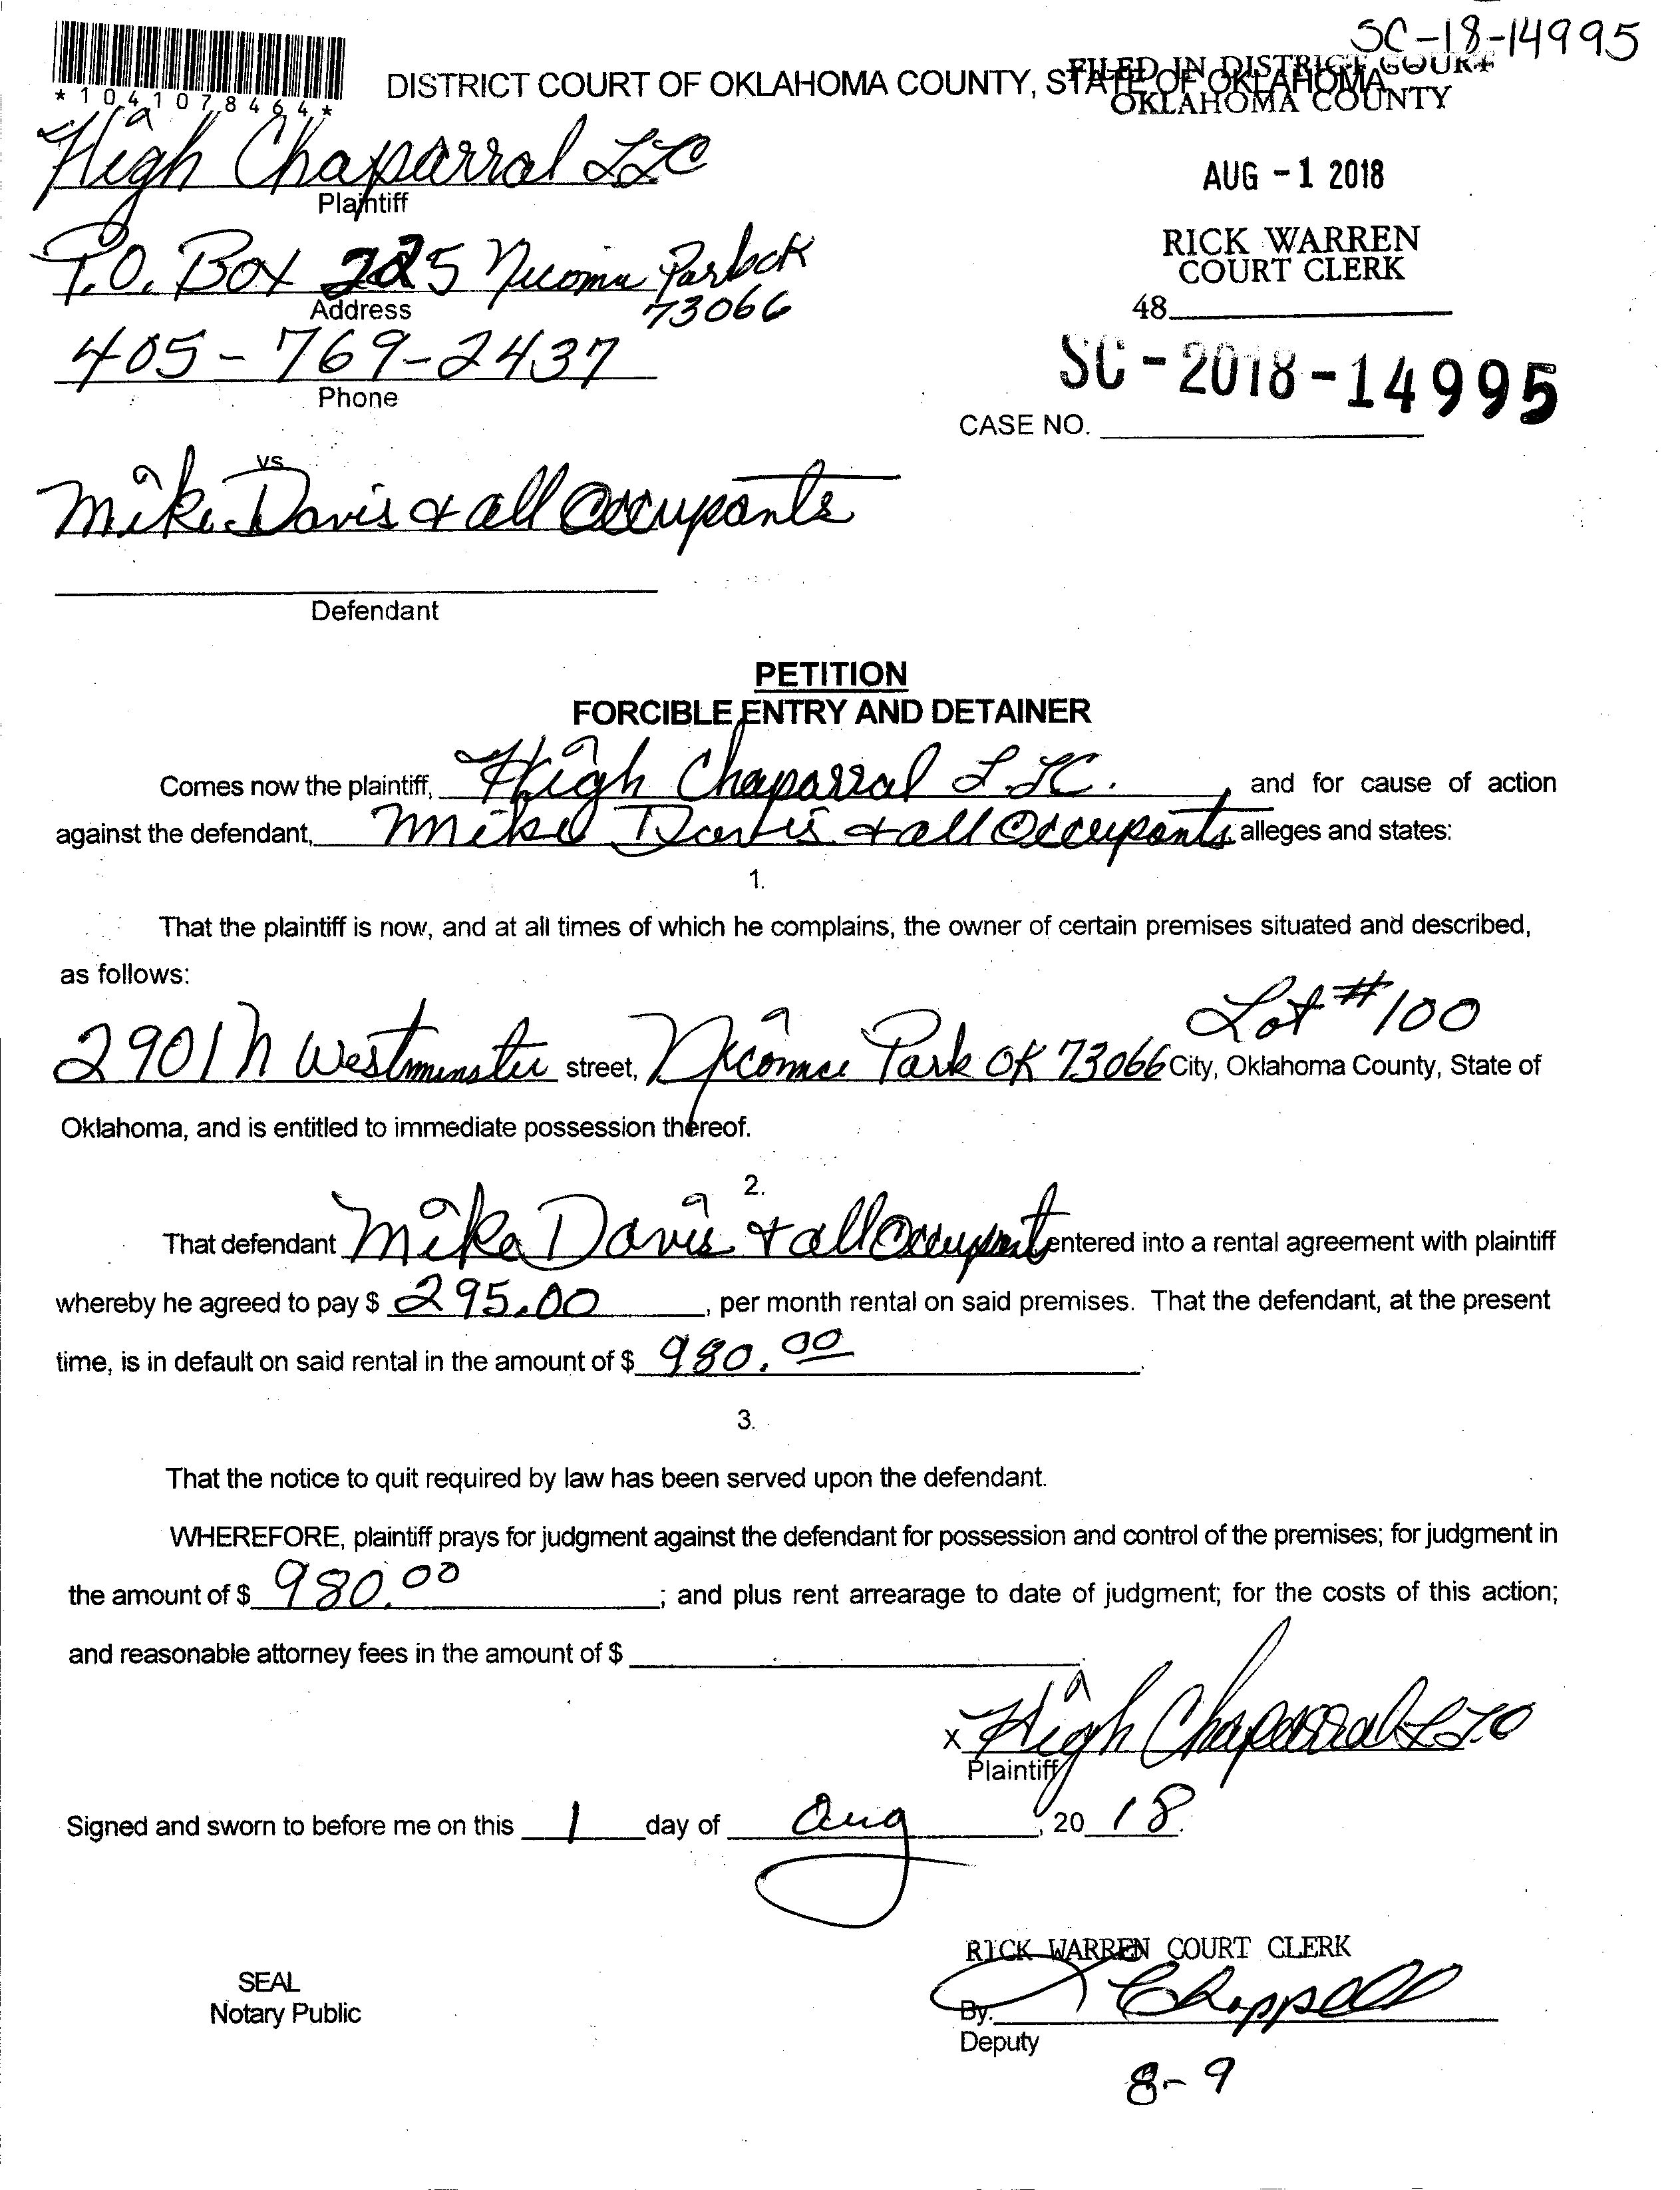 SC-18-14995
*1041078464*
DISTRICT COURT OF OKLAHOMA COUNTY, STATE OF OKLAHOMA
FILED IN DISTRICT COURT
OKLAHOMA COUNTY
High Chaparral LLC
Plaintiff
AUG -1 2018
RICK WARREN
COURT CLERK
48
P.O. Box 225 Nicoma Park OK
Address
73066
405-769-2437
Phone
SC-2018-14995
CASE NO.
vs
Mike Davis & all Occupants
Defendant
PETITION
FORCIBLE ENTRY AND DETAINER
Comes now the plaintiff, High Chaparral LLC. , and for cause of action
against the defendant, Mike Davis & all Occupants alleges and states:
1.
That the plaintiff is now, and at all times of which he complains, the owner of certain premises situated and described,
as follows:
Lot #100
2901 N Westminster street, Nicoma Park OK 73066 City, Oklahoma County, State of
Oklahoma, and is entitled to immediate possession thereof.
2.
That defendant Mike Davis & all Occupant entered into a rental agreement with plaintiff
whereby he agreed to pay $ 295.00 , per month rental on said premises. That the defendant, at the present
time, is in default on said rental in the amount of $ 980.00 .
3.
That the notice to quit required by law has been served upon the defendant.
WHEREFORE, plaintiff prays for judgment against the defendant for possession and control of the premises; for judgment in
the amount of $ 980.00 ; and plus rent arrearage to date of judgment; for the costs of this action;
and reasonable attorney fees in the amount of $ .
x High Chaparral LLC
Plaintiff
Signed and sworn to before me on this 1 day of Aug , 20 18.
RICK WARREN COURT CLERK
SEAL
Notary Public
By. Chappell
Deputy
8-9